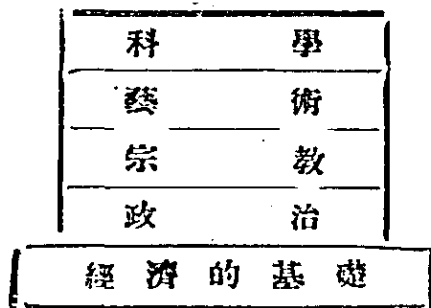 科學
藝術
宗教
政治
經濟的基礎